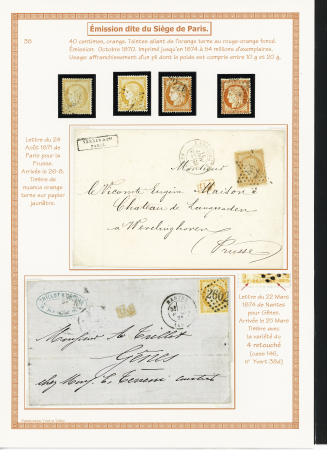 Émission dite du Siège de Paris.
38
40 centimes, orange. Teintes allant de l'orange terne au rouge-orange foncé.
Émission: Octobre 1870. Imprimé jusqu'en 1874 à 84 millions d'exemplaires.
Usage: affranchissement d'un pli dont le poids est compris entre 10 g et 20 g.
Lettre du 24
Août 1871 de
Paris pour la
Prusse.
Arrivée le 26-8.
Timbre de
nuance orange
terne sur papier
jaunâtre.
PARIS
Monsieur
Le Vicomte Eugène Maison
Château de
à
Prusse
Lettre du 22 Mars
1874 de Nantes
pour Gênes.
Arrivée le 25 Mars
Timbre avec
la variété du
4 retouché
(case 146,
n° Yvert 38d)
NANTES
260
PD
Monsieur
Gênes
chez